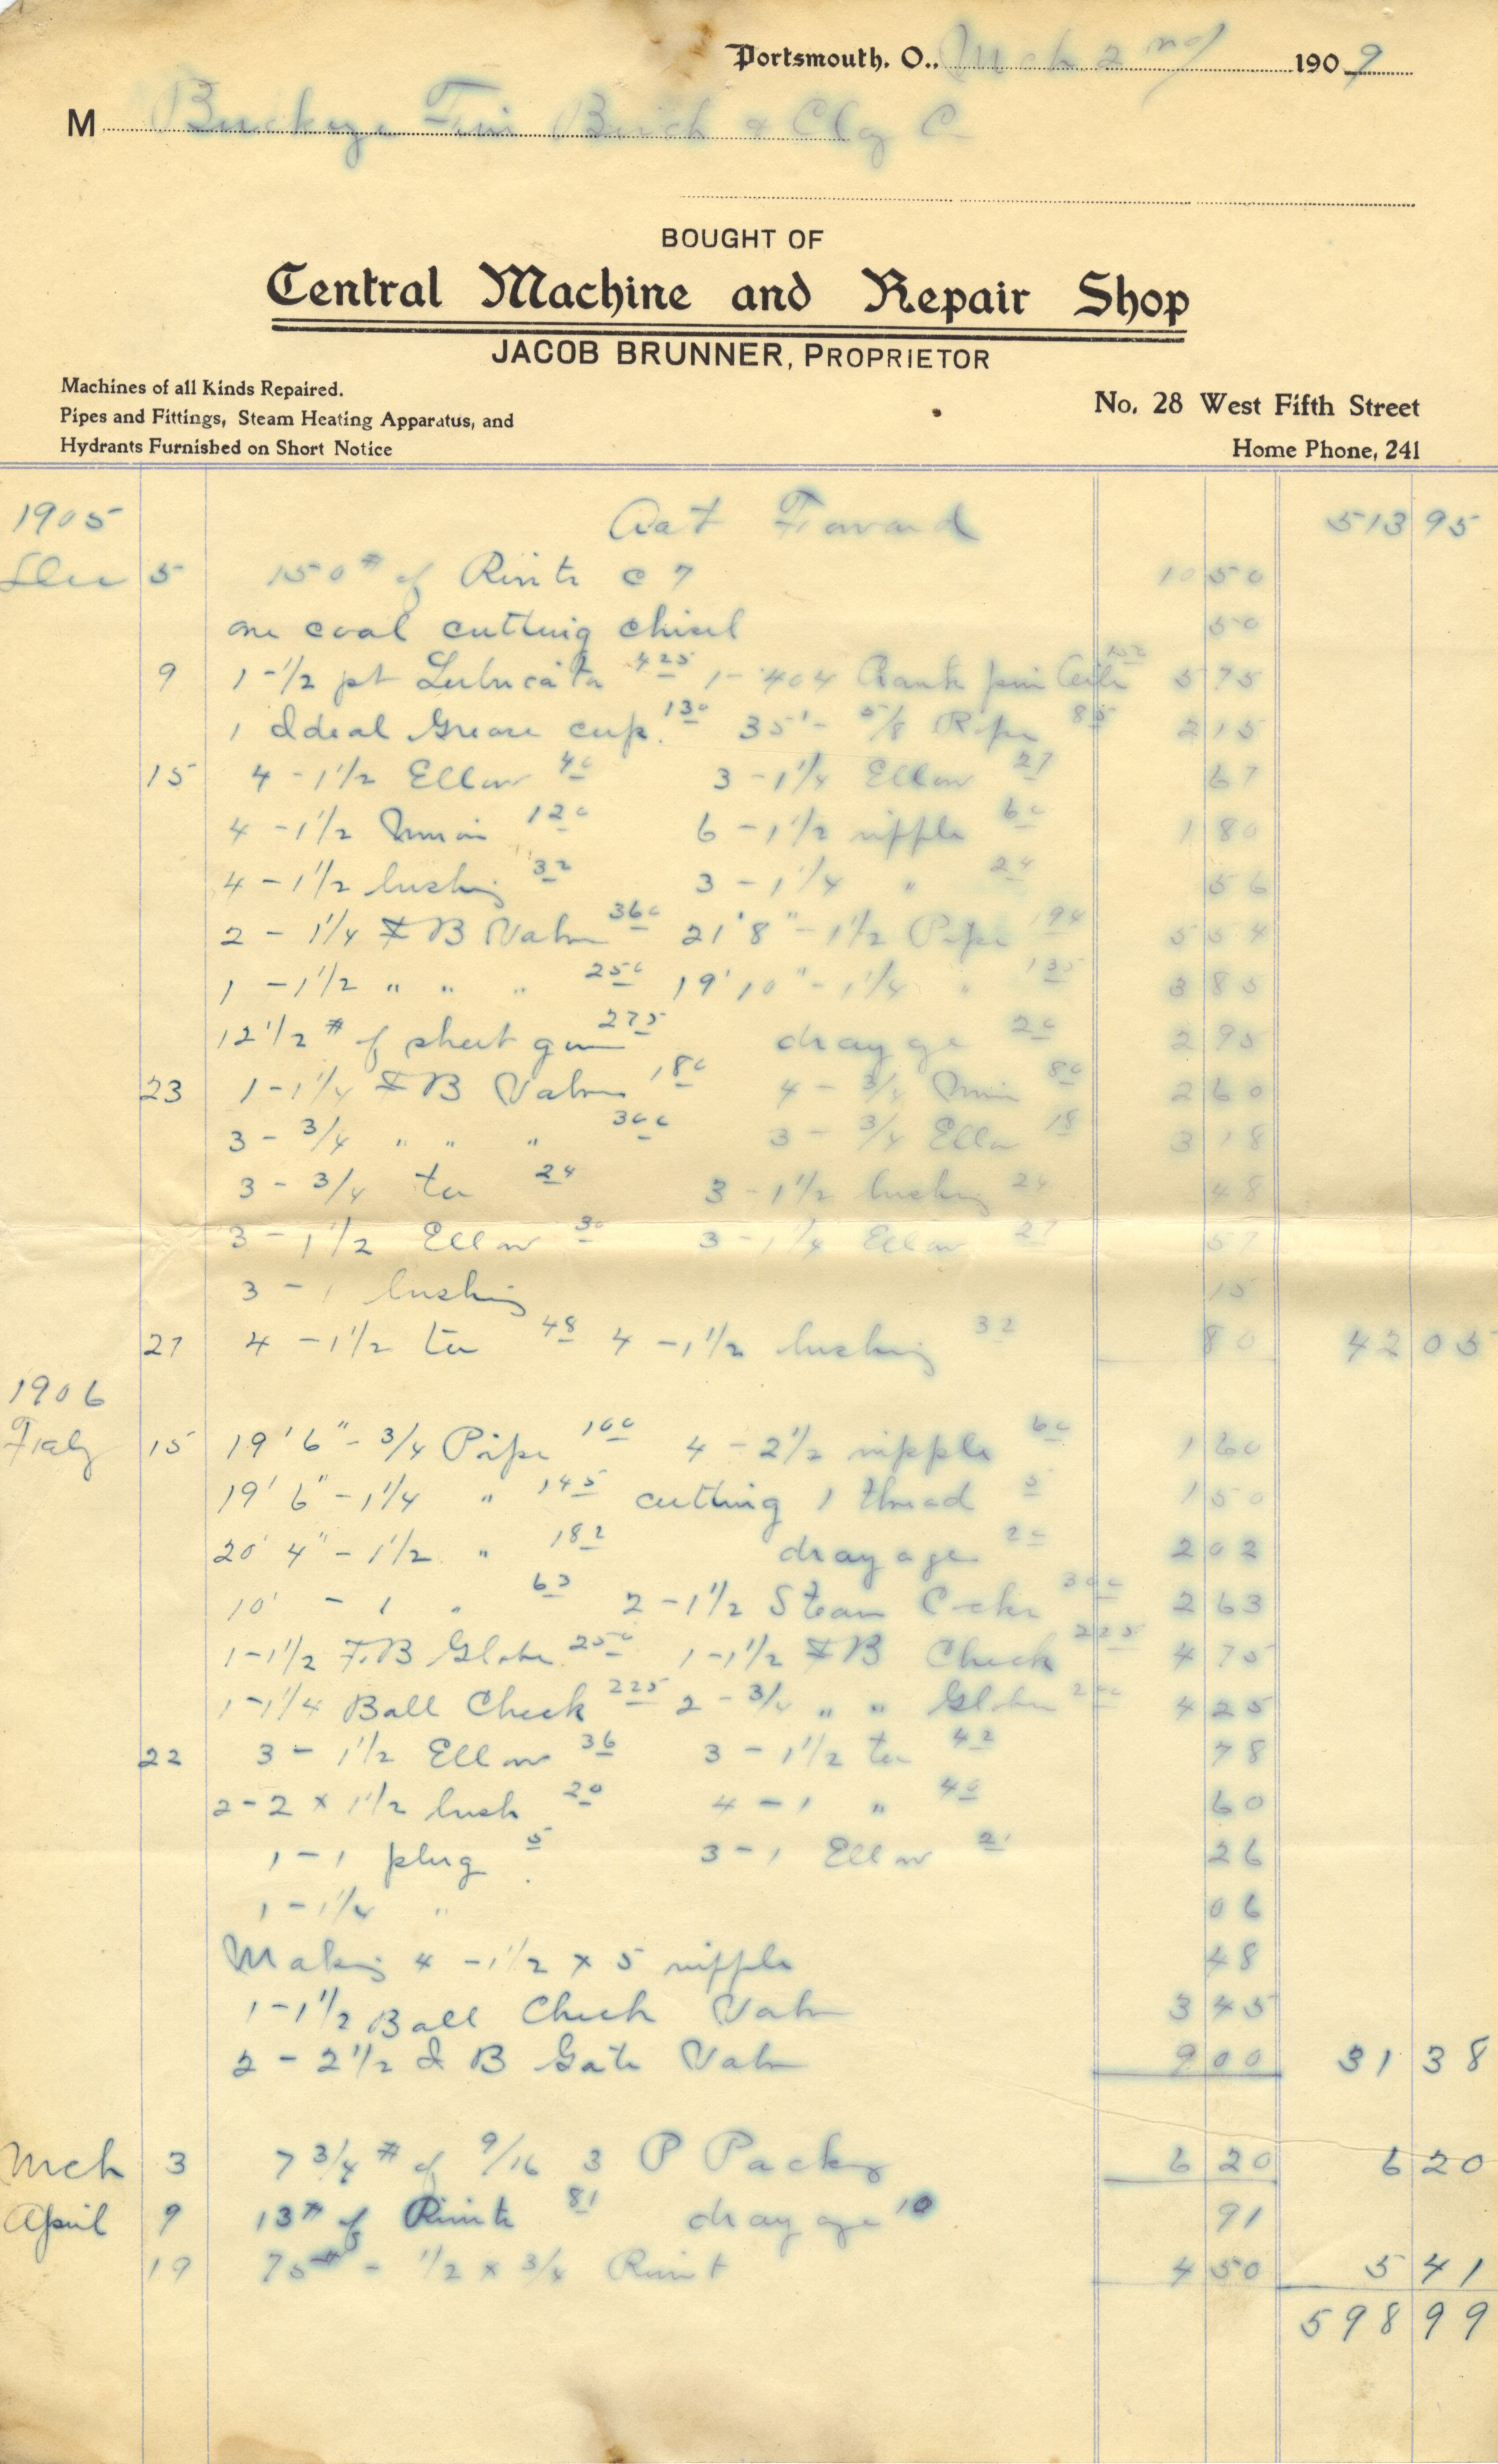 Portsmouth, O., Mch 2nd 1909
M Buckeye Fire Brick & Clay C
BOUGHT OF
Central Machine and Repair Shop
JACOB BRUNNER, PROPRIETOR
Machines of all Kinds Repaired.
Pipes and Fittings, Steam Heating Apparatus, and
Hydrants Furnished on Short Notice
No. 28 West Fifth Street
Home Phone, 241
1905 Forward 513 95
Dec 5 150 # of c 7 10 50
one coal cutting chisel 50
9 1-1/2 pt 425 1- 404 pin 5 75
1 Ideal Grease cup. 130 35'- 5/8 85 2 15
15 4 - 1 1/2 Ellow 40 3 - 1 1/4 Ellow 27 67
4 - 1 1/2 120 6 - 1 1/2 nipple 60 1 80
4 - 1 1/2 bushing 32 3 - 1 1/4 " 24 56
2 - 1 1/4 B Valve 360 21' 8" - 1 1/2 Pipe 194 5 54
1 - 1 1/2 " " " 250 19' 10" - 1 1/4 " 135 3 85
12 1/2 # of sheet gum 275 drayage 20 2 95
23 1 - 1 1/4 B Valve 180 4 - 3/4 80 2 60
3 - 3/4 " " " 300 3 - 3/4 Ello 18 3 18
3 - 3/4 tee 24 3 - 1 1/2 bushing 24 48
3 - 1 1/2 Ellow 30 3 - 1 1/4 Ellow 27 57
3 - 1 bushing 15
27 4 - 1 1/2 tee 48 4 - 1 1/2 bushing 32 80 42 05
1906
15 19' 6" - 3/4 Pipe 100 4 - 2 1/2 nipple 60 1 60
19' 6" - 1 1/4 " 145 cutting 1 thread 5 1 50
20' 4" - 1 1/2 " 182 drayage 20 2 02
10' - 1 " 63 2 - 1 1/2 Steam 200 2 63
1 - 1 1/2 F.B Globe 250 1 - 1 1/2 B Check 225 4 75
1 - 1 1/4 Ball Check 225 2 - 3/4 " " Globe 200 4 25
22 3 - 1 1/2 Ellow 36 3 - 1 1/2 tee 42 78
2 - 2 x 1 1/2 bush 20 4 - 1 " 40 60
1 - 1 plug 5 3 - 1 Ellow 21 26
1 - 1 1/4 " 06
Making 4 - 1 1/2 x 5 nipple 48
1 - 1 1/2 Ball Check Valve 3 45
2 - 2 1/2 B Gate Valve 9 00 31 38
Mch 3 7 3/4 # of 9/16 3 P Packing 6 20 6 20
April 9 13 # of 81 drayage 10 91
19 75 # - 1/2 x 3/4 4 50 5 41
598 99